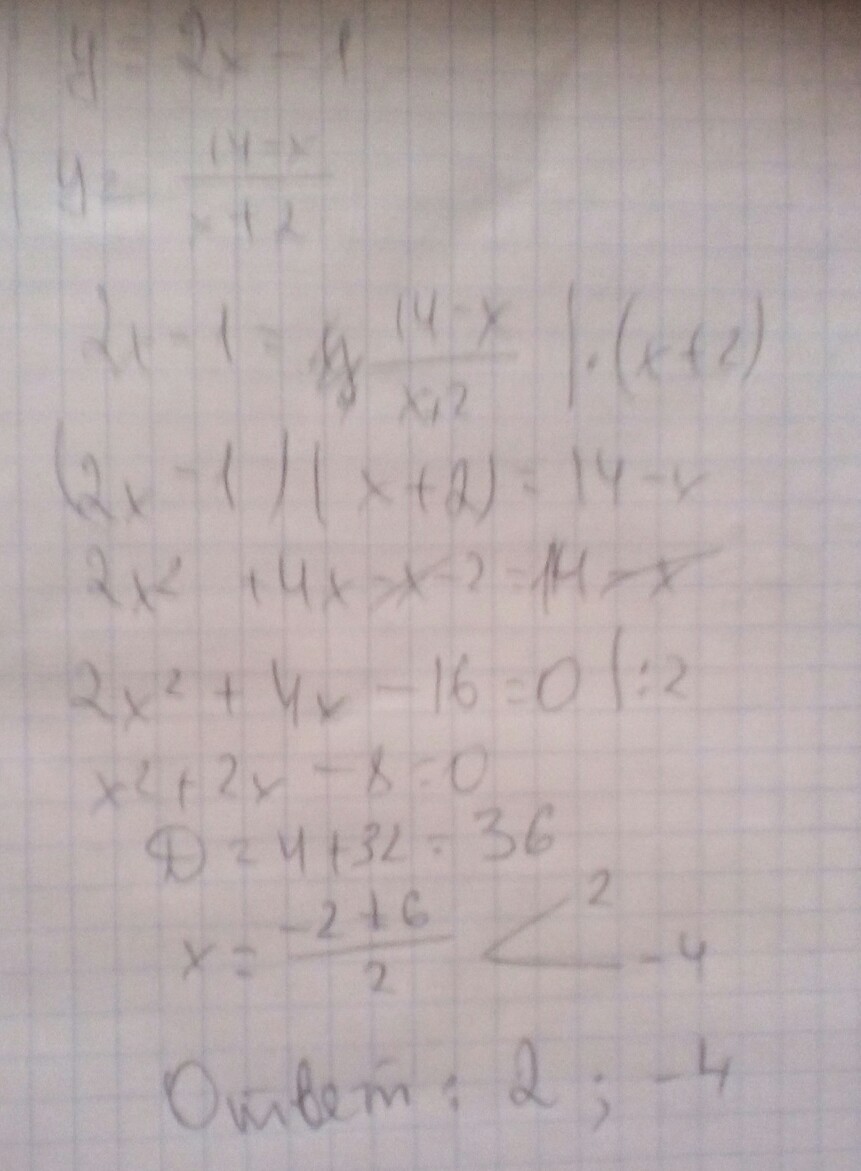 y = 2x - 1
y = (14-x)/(x+2)
2x - 1 = (14-x)/(x+2) |·(x+2)
(2x - 1)(x+2) = 14-x
2x² +4x -x -2 = 14 -x
2x² + 4x - 16 = 0 |:2
x²+2x - 8 = 0
D = 4+32 = 36
x = (-2+6)/2 < 2
-4
Ответ: 2; -4